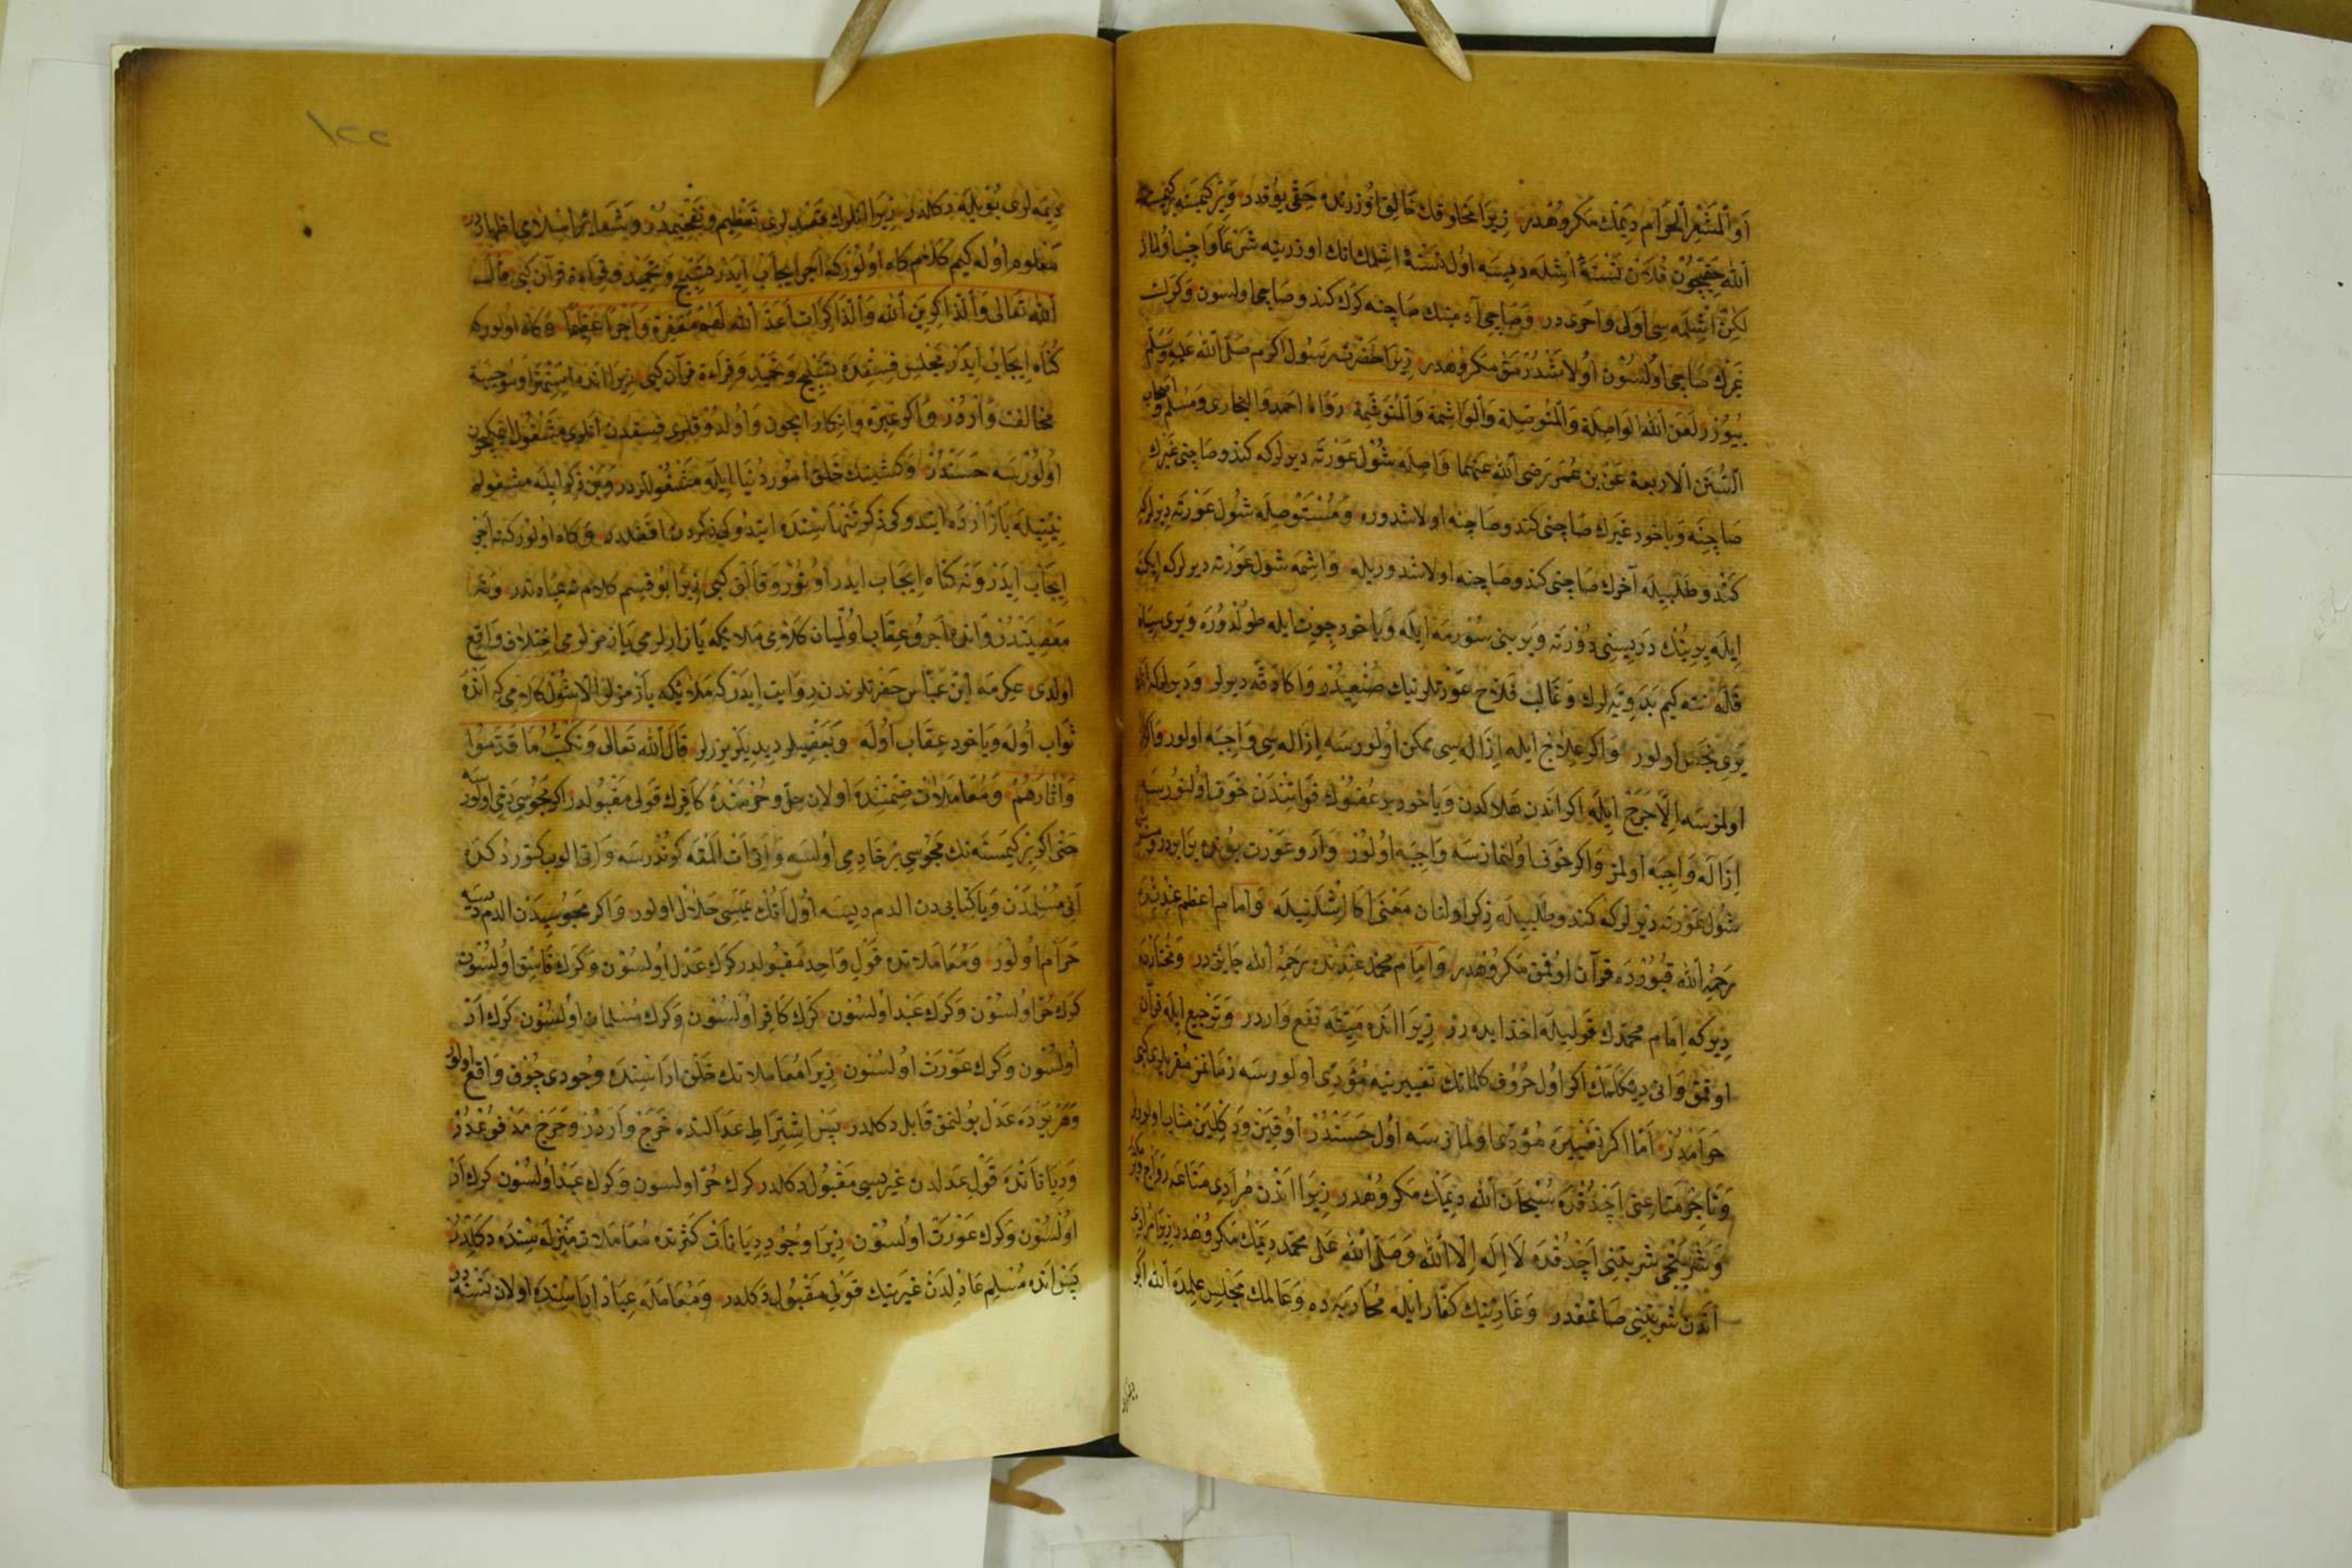 أو المشعر الحرام ديمك مكروهدر زيرا مخلوقك خالق اوزرنده حقى يوقدر و بر كيمسنه بر كيمسيه
الله حقيچون فلان نسنه‌ى ايشله ديسه اول نسنه‌ى ايشلمك انك اوزرينه شرعا واجب اولماز
لكن ايشلمه سى اولى و احرى در و صاچى آدمينك صاچنه كرك كندو صاچى اولسون و كرك
غيرك صاچى اولسون اولاشدرمق مكروهدر زيرا حضرت رسول اكرم صلى الله عليه وسلم
بيورر لعن الله الواصلة والمتوصلة والواشمة والمتوشمة رواه احمد والبخارى ومسلم و اصحاب
السنن الاربعة عن بن عمر رضى الله عنهما واصله شول عورته ديرلركه كندو صاچنى غيرك
صاچنه و ياخود غيرك صاچنى كندو صاچنه اولاشدوره و مستوصله شول عورته ديرلركه
كندو طلبيله آخرك صاچنى كندو صاچنه اولاشدوريله واشمه شول عورته ديرلركه ايكنه
ايله يرينك دريسنى دورته و يرينى سورمه ايله و ياخود چويت ايله طولدوره و يرى سياه
قاله نته كيم بدويه لرك و غالب فلاح عورتلرينك صنعيدر و اكا دقه ديرلر
يرى نجس اولور و اكر علاج ايله ازاله سى ممكن اولورسه ازاله سى واجبه اولور و اكر
اولمزسه الا جرح ايله اكر اندن هلاكدن و ياخود بر عضوك فواتندن خوف اولنورسه
ازاله واجبه اولمز و اكر خوف اولنمازسه واجبه اولور و ار و عورت بونده برابردر
شول عورته ديرلركه كندو طلبيله ذكر اولنان معنى اكا ايشلنيله و امام اعظم عندنده
رحمه الله قبورده قرآن اوقمق مكروهدر و امام محمد عندنده رحمه الله جايزدر و مختارده
ديركه امام محمدك قوليله اخذ ايدرز زيرا انده ميته نفع واردر و ترجيع ايله قرآن
اوقمق و انى ديكلمك اكر اول حروف كلماتك تغييرينه مؤدى اولورسه زمانمز مقريلرى كبى
حرامدر اما اكر تغييره مؤدى اولمازسه اول حسندر اوقين و ديكلين مثاب اولورلر
و تاجر متاعنى آچدقده سبحان الله ديمك مكروهدر زيرا اندن مرادى متاعه رواج ويرمكدر
و شربتجى شربتنى آچدقده لا اله الا الله و صلى الله على محمد ديمك مكروهدر زيرا مرادى
اندن شربتنى صاتمقدر و غازينك كفار ايله محاربه ده و عالمك مجلس علمده الله اكبر
ديمه‌لرى
١٢٢
ديمه لرى بويله دكلدر زيرا انلرك قصدلرى تعظيم و تفخيمدر و شعائر اسلامى اظهاردر
معلوم اوله كيم كلام كاه اولور كه اجر ايجاب ايدر تسبيح و تحميد و قراءة قرآن كبى قال
الله تعالى والذاكرين الله والذاكرات اعد الله لهم مغفرة واجرا عظيما و كاه اولور كه
كناه ايجاب ايدر مجلس فسقده تسبيح و تحميد و قراءة قرآن كبى زيرا انده استهزا و موجبه
مخالفت واردر و اكر عبرة و انكار ايچون و اولدوقلرى فسقدن انلرى مشغول اتمكيچون
اولورسه حسندر و كشينك خلق امور دنيا ايله مشغوللردر و بن ذكر ايله مشغولم
نيتيله بازارده ايتدوكى ذكر تنهاسنده ايتدوكى ذكردن افضلدر و كاه اولور كه نه اجر
ايجاب ايدر و نه كناه ايجاب ايدر اوتور و قالق كبى زيرا بو قسم كلام نه عبادتدر و نه
معصيتدر و انده اجر و عقاب اولميان كلامى ملائكه يازارلرمى يازمزلرمى اختلاف واقع
اولدى عكرمه ابن عباس حضرتلرندن روايت ايدر كه ملائكه يازمزلر الا شول كلامى كه انده
ثواب اوله و ياخود عقاب اوله و بعضيلر ديديلر يزرلر قال الله تعالى ونكتب ما قدموا
وآثارهم و معاملات ضمننده اولان حل و حرمتده كافرك قولى مقبولدر اكر مجوسى دخى اولورسه
حتى اكر بر كيمسنه نك مجوسى بر خادمى اولسه و انى ات المغه كوندرسه و اتى الوب كتوردكده
انى مسلمدن و يا كتابى دن الدم ديسه اول اتك يمسى حلال اولور و اكر مجوسيدن الدم ديسه
حرام اولور و معاملاتده قول واحد مقبولدر كرك عدل اولسون و كرك فاسق اولسون
كرك حر اولسون و كرك عبد اولسون كرك كافر اولسون و كرك مسلمان اولسون كرك ار
اولسون و كرك عورت اولسون زيرا معاملاتك خلق اراسنده وجودى چوق واقع اولور
و هر يرده عدل بولنمق قابل دكلدر پس اشتراط عدالتده حرج واردر و حرج مدفوعدر
و دياناتده قول عدلدن غيريسى مقبول دكلدر كرك حر اولسون و كرك عبد اولسون كرك ار
اولسون و كرك عورت اولسون زيرا وجود ديانات كثرتده معاملات منزله سنده دكلدر
پس انده مسلم عادلدن غيرينك قولى مقبول دكلدر و معامله عباد اراسنده اولان نسنه در